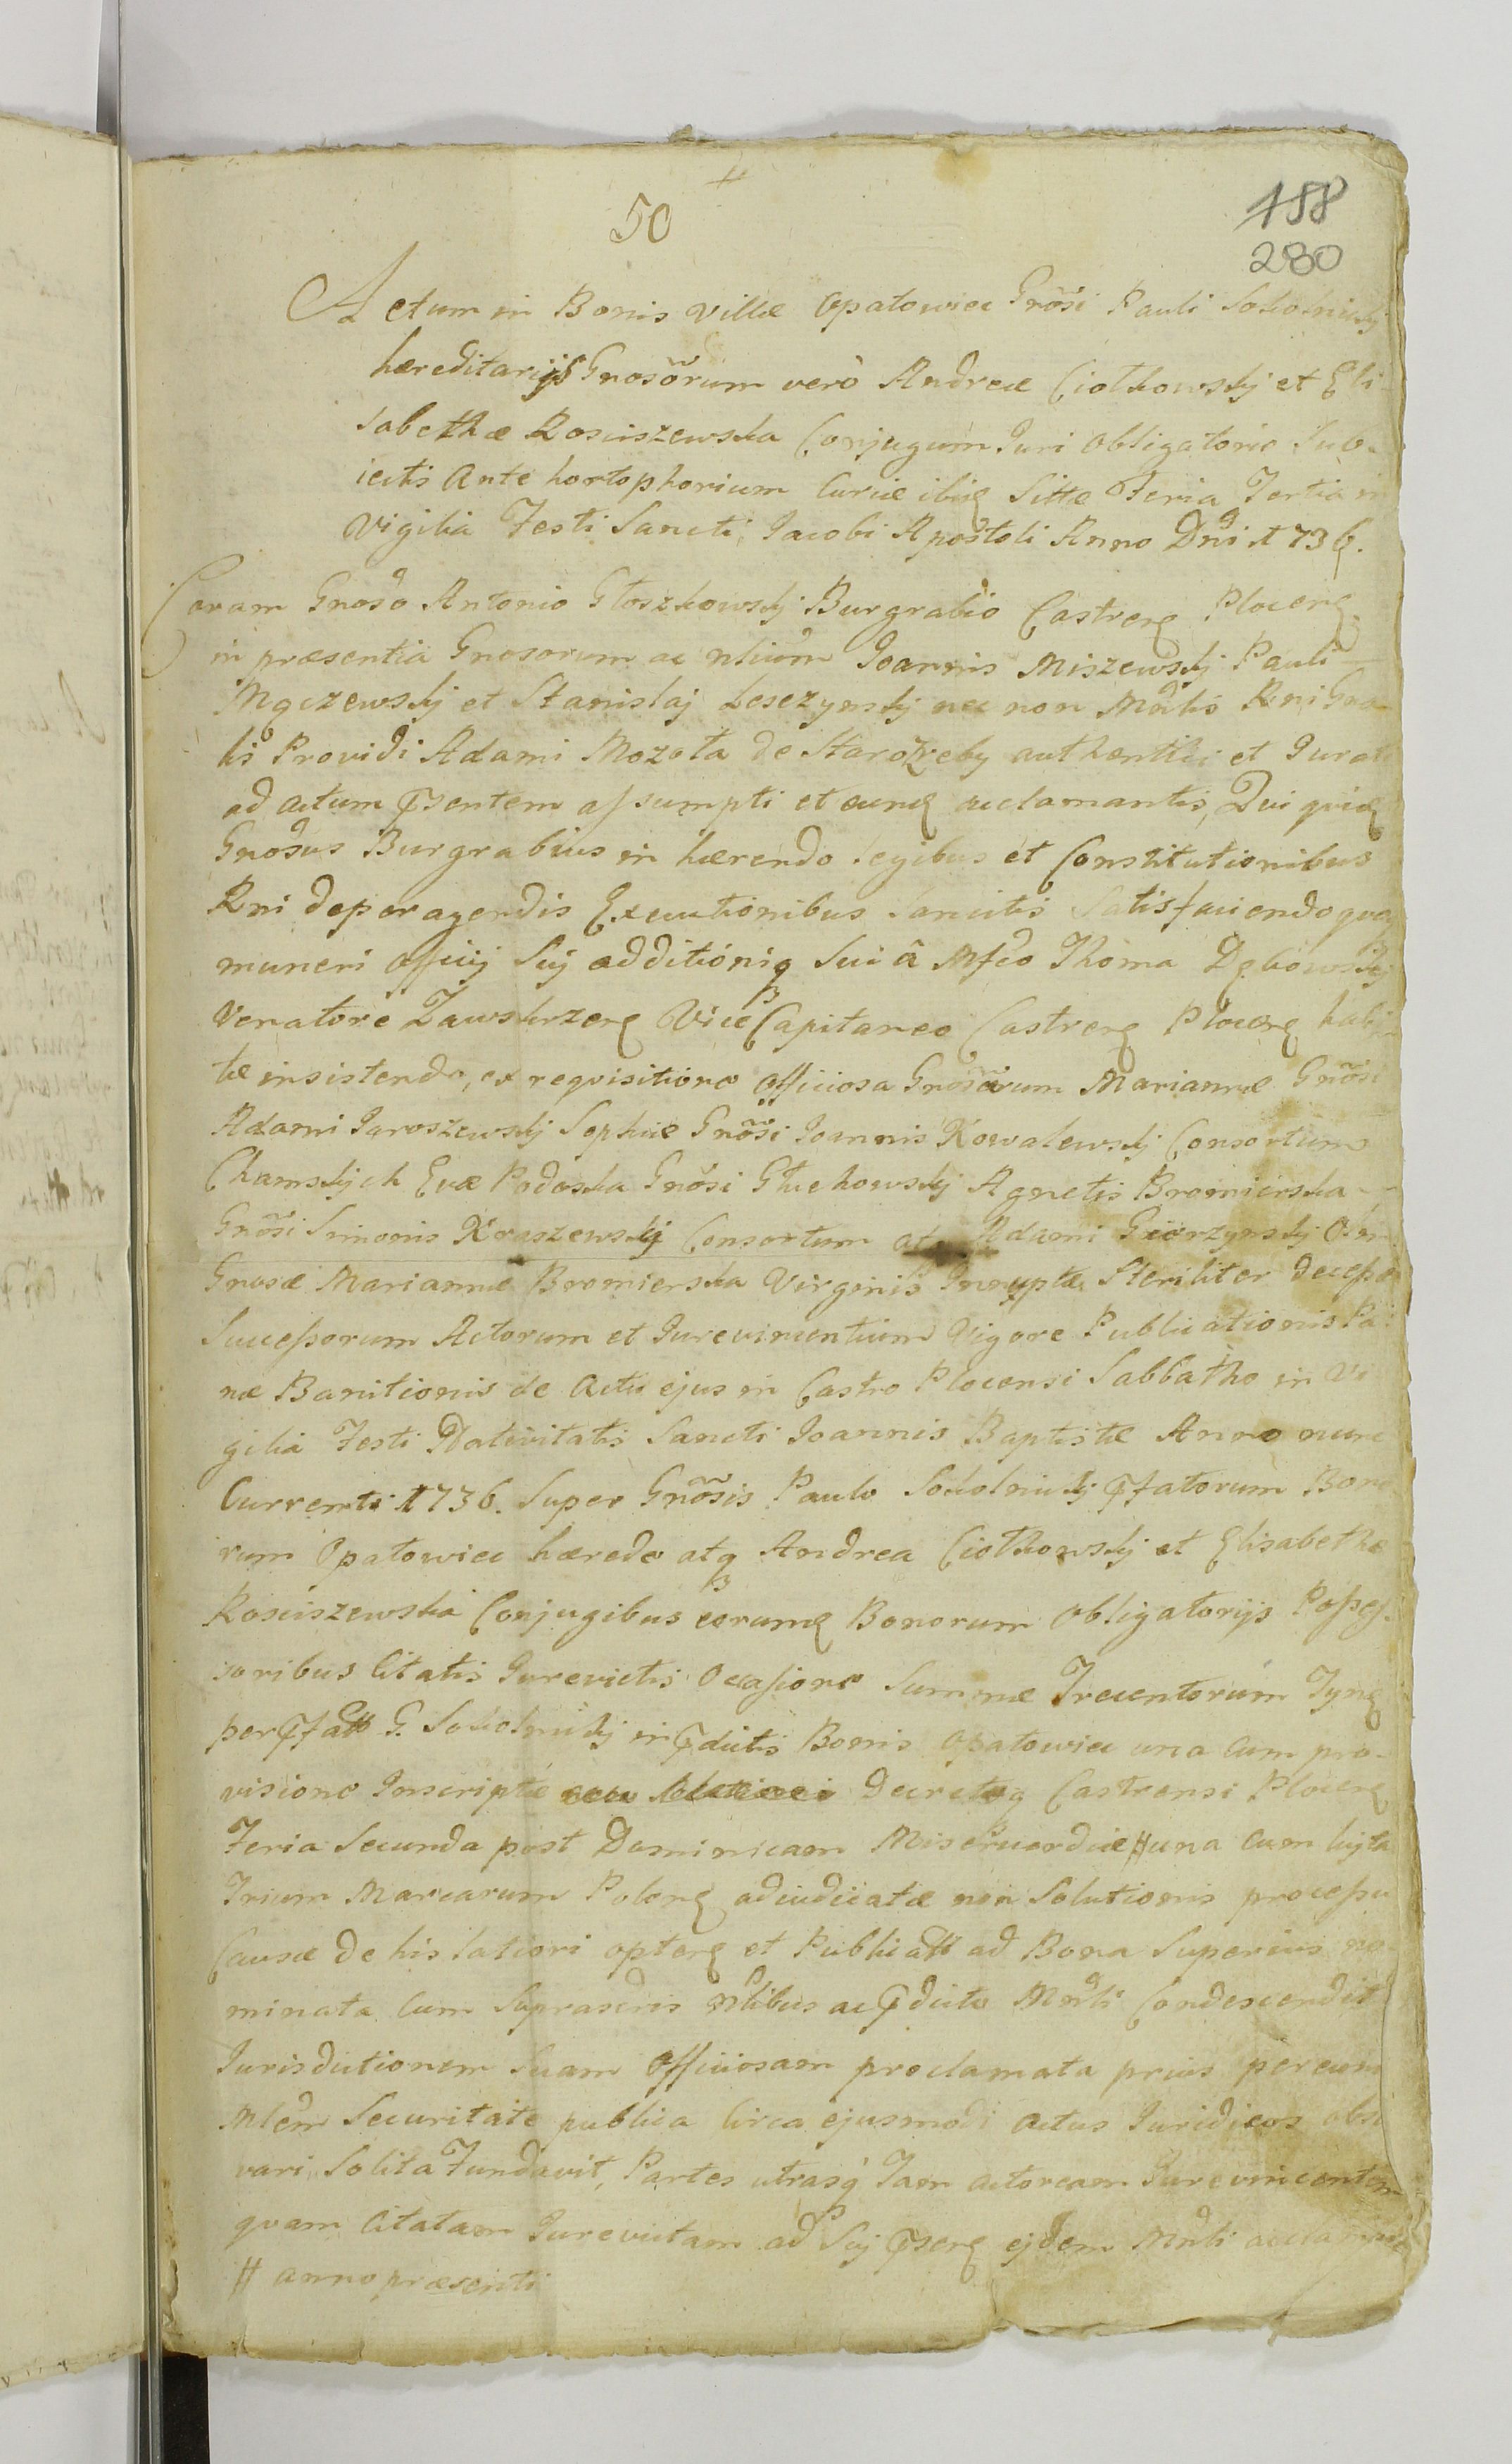 50
188
280
Actum in Bonis Villæ Opatowiec Gnõsi Pauli Sokolnicky
hæreditarijs Gnosõrum verò Andreæ Ciołkowsky et Eli-
sabethæ Rosciszewska Conjugum Juri Obligatorio Sub-
iectis Ante hortophorium Curiæ ibiq Sittæ Feria Tertia in
Vigilia Festi Sancti Jacobi Apostoli Anno Dni 1736.
Coram Gnoso Antonio Głoszkowsky Burgrabio Castreñ Plocen
in præsentia Gnosorum ac nlium Joannis Miszewsky Pauli
Mączewsky et Stanislaj Lesczynsky nec non Mnlis Rni Gna-
lis Providi Adami Mozota de Starozreby authentici et Jurati
ad actum præsentem assumpti et eunq acclamantis, Qui quidem
Gnosus Burgrabius in hærendo legibus et Constitutionibus
Rni de peragendis Executionibus Sancitis Satisfaciendo quoq
muneri officij Suj additioniq Sui â Mfco Thoma Dębowsky
Venatore Zawskrzen Vice Capitaneo Castren Plocen habi-
tæ insistendo, ex requisitione officiosa Gnosarum Mariannæ Gnõsi
Adami Jaroszewsky Sophiæ Gnõsi Joannis Kowalewsky Consortum
Chamskych Evæ Podoska Gnõsi Głuchowsky Agnetis Bromierska
Gnõsi Simonis Kraszewsky Consortum atq Adami Giorzynsky Olim
Gnosæ Mariannæ Bromierska Virginis Innuptæ Steriliter decessæ
Successorum Actorum et Jurevincentium Vigore Publicationis Pæ-
næ Banitionis de Actu ejus in Castro Plocensi Sabbatho in Vi
gilia Festi Nativitatis Sancti Joannis Baptistæ Anno nunc
Currenti 1736. Super Gnõsis Paulo Sokolnicky præfatorum Bono
rum Opatowiec hærede atq Andrea Ciołkowsky et Elisabetha
Rosciszewska Conjugibus eorumq Bonorum Obligatorijs Posses-
soribus Citatis Jurevictis Occasione Summæ Trecentorum Tynf
per præfatum G. Sokolnicky in prædictis Bonis Opatowiec una cum pro-
visione Inscriptæ Decretoq Castrensi Plocen
Feria Secunda post Dominicam Misericordiæ # una cum lujta
Trium Marcarum Polon adiudicatæ non Solutionis processu
Causæ de his latiori opten et Publicatæ ad Bona Superius no-
minata Cum Suprascris nlibus ac prædicto Mnli Condescendit
Jurisdictionem Suam Officiosam proclamata prius per eum
Mlem Securitate publica circa ejusmodi Actus Juridicos obser
vari Solita Fundavit, Partes utrasq Tam actoream Jurevincentem
quam Citatam Jurevictam ad Suj præsen ejdem Mnli acclamare
# anno præsenti